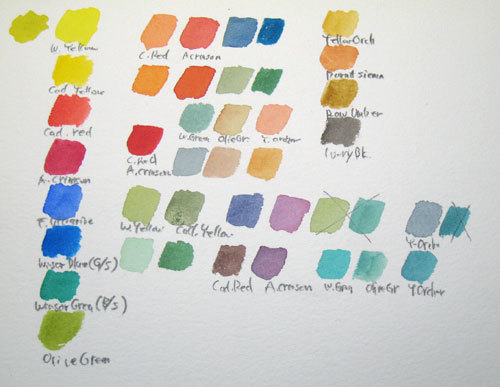 W. Yellow
Cad Yellow
Cad. red
A. Crimson
Winsor Blue (G/S)
Winsor Green (B/S)
Olive Green
C. Red Acrimson
W. Green Olive Gr. Y. order
C. Red
A. Crimson
W. Yellow Cad. Yellow
Y-Orch
Cad. Red Acrimson W. Grn Olive Gr Y Order
Yellow Orch
burnt siena
Raw Umber
Ivory Bk.